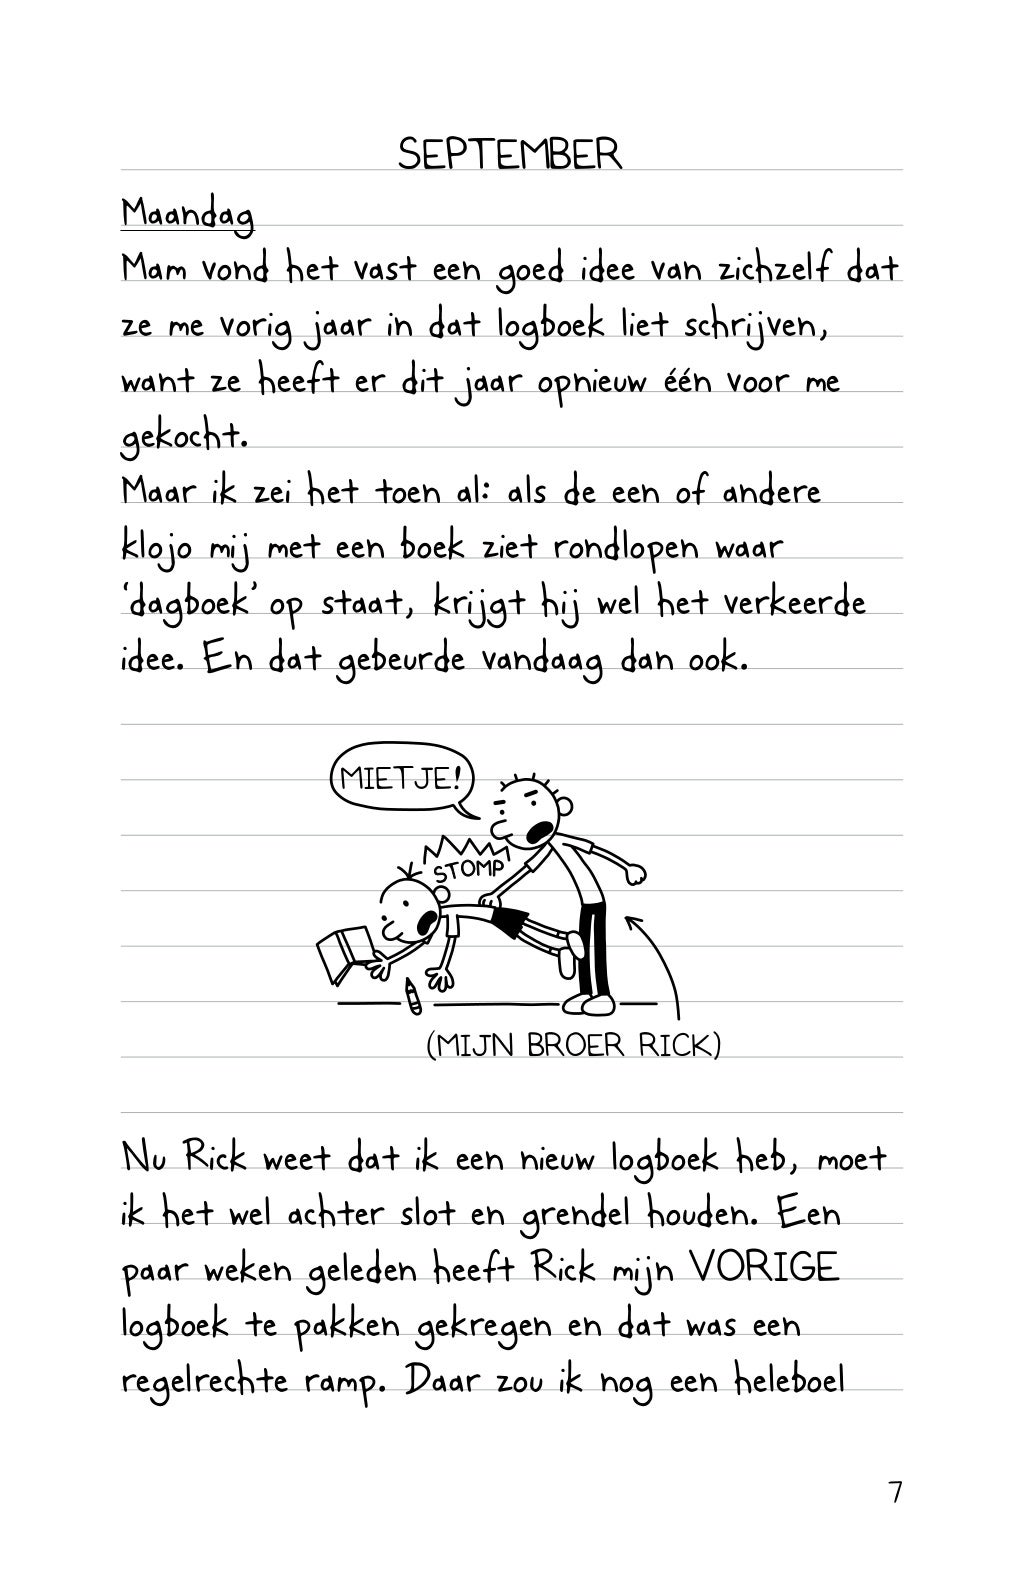 SEPTEMBER
Maandag
Mam vond het vast een goed idee van zichzelf dat
ze me vorig jaar in dat logboek liet schrijven,
want ze heeft er dit jaar opnieuw één voor me
gekocht.
Maar ik zei het toen al: als de een of andere
klojo mij met een boek ziet rondlopen waar
‘dagboek’ op staat, krijgt hij wel het verkeerde
idee. En dat gebeurde vandaag dan ook.
MIETJE!
STOMP
(MIJN BROER RICK)
Nu Rick weet dat ik een nieuw logboek heb, moet
ik het wel achter slot en grendel houden. Een
paar weken geleden heeft Rick mijn VORIGE
logboek te pakken gekregen en dat was een
regelrechte ramp. Daar zou ik nog een heleboel
7